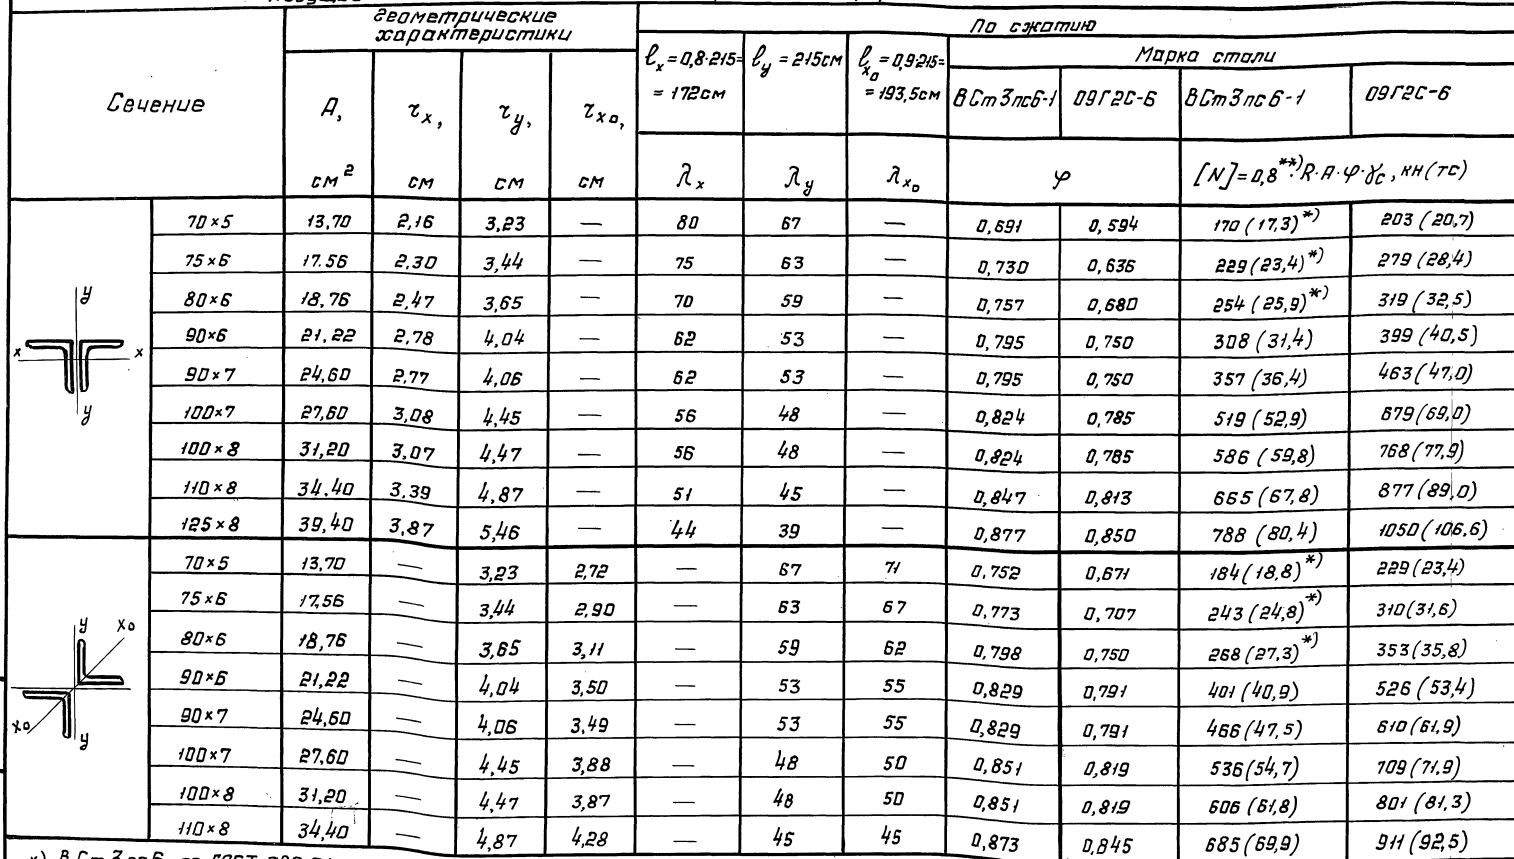 Геометрические
характеристики
По сжатию
Сечение
A, см²
τx, см
τy, см
τx₀, см
ℓx = 0,8·215= = 172см
ℓy = 215см
ℓx₀ = 0,9·215= = 193,5см
Марка стали
ВСт3пс6-1 09Г2С-6 ВСт3пс6-1 09Г2С-6
λx λy λx₀ φ [N]=0,8**)·R·A·φ·γc, кн(тс)
70×5 13,70 2,16 3,23 — 80 67 — 0,691 0,594 170 (17,3)*) 203 (20,7)
75×6 17.56 2,30 3,44 — 75 63 — 0,730 0,636 229 (23,4)*) 279 (28,4)
80×6 18,76 2,47 3,65 — 70 59 — 0,757 0,680 254 (25,9)*) 319 (32,5)
90×6 21,22 2,78 4,04 — 62 53 — 0,795 0,750 308 (31,4) 399 (40,5)
90×7 24,60 2,77 4,06 — 62 53 — 0,795 0,750 357 (36,4) 463 (47,0)
100×7 27,60 3,08 4,45 — 56 48 — 0,824 0,785 519 (52,9) 679 (69,0)
100×8 31,20 3,07 4,47 — 56 48 — 0,824 0,785 586 (59,8) 768 (77,9)
110×8 34.40 3,39 4,87 — 51 45 — 0,847 0,813 665 (67,8) 877 (89,0)
125×8 39,40 3,87 5,46 — 44 39 — 0,877 0,850 788 (80,4) 1050 (106,6)
70×5 13,70 — 3,23 2,72 — 67 71 0,752 0,671 184 (18,8)*) 229 (23,4)
75×6 17,56 — 3,44 2,90 — 63 67 0,773 0,707 243 (24,8)*) 310 (31,6)
80×6 18,76 — 3,65 3,11 — 59 62 0,798 0,750 268 (27,3)*) 353 (35,8)
90×6 21,22 — 4,04 3,50 — 53 55 0,829 0,791 401 (40,9) 526 (53,4)
90×7 24,60 — 4,06 3,49 — 53 55 0,829 0,791 466 (47,5) 610 (61,9)
100×7 27,60 — 4,45 3,88 — 48 50 0,851 0,819 536 (54,7) 709 (71,9)
100×8 31,20 — 4,47 3,87 — 48 50 0,851 0,819 606 (61,8) 801 (81,3)
110×8 34,40 — 4,87 4,28 — 45 45 0,873 0,845 685 (69,9) 911 (92,5)
y
x x
y
y x₀
x₀ y